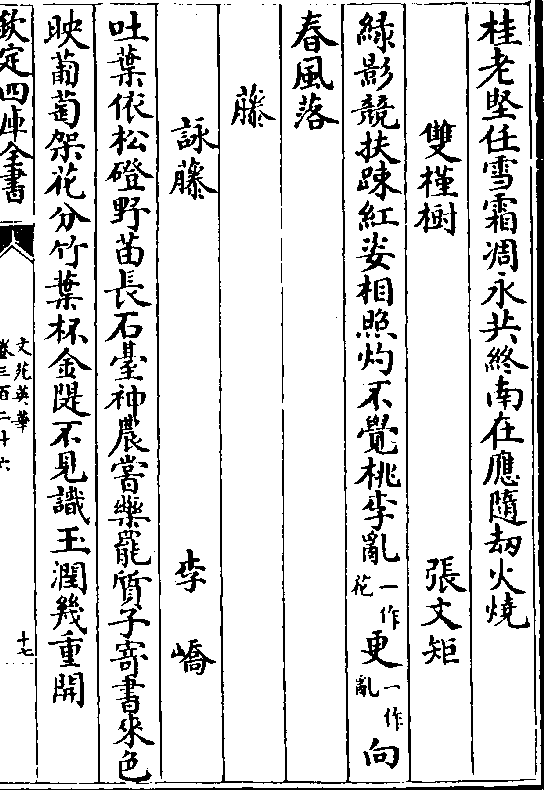 桂老堅任雪霜凋永共終南在應隨刼火燒
雙槿樹 張文矩
綠影競扶疎紅姿相照灼不覺桃李亂一作花更一作亂向
春風落
藤
詠藤 李嶠
吐葉依松磴野苗長石臺神農嘗藥罷質子寄書來色
映葡萄架花分竹葉杯金隄不見識玉潤幾重開
欽定四庫全書
文苑英華
卷三百二十六
十七